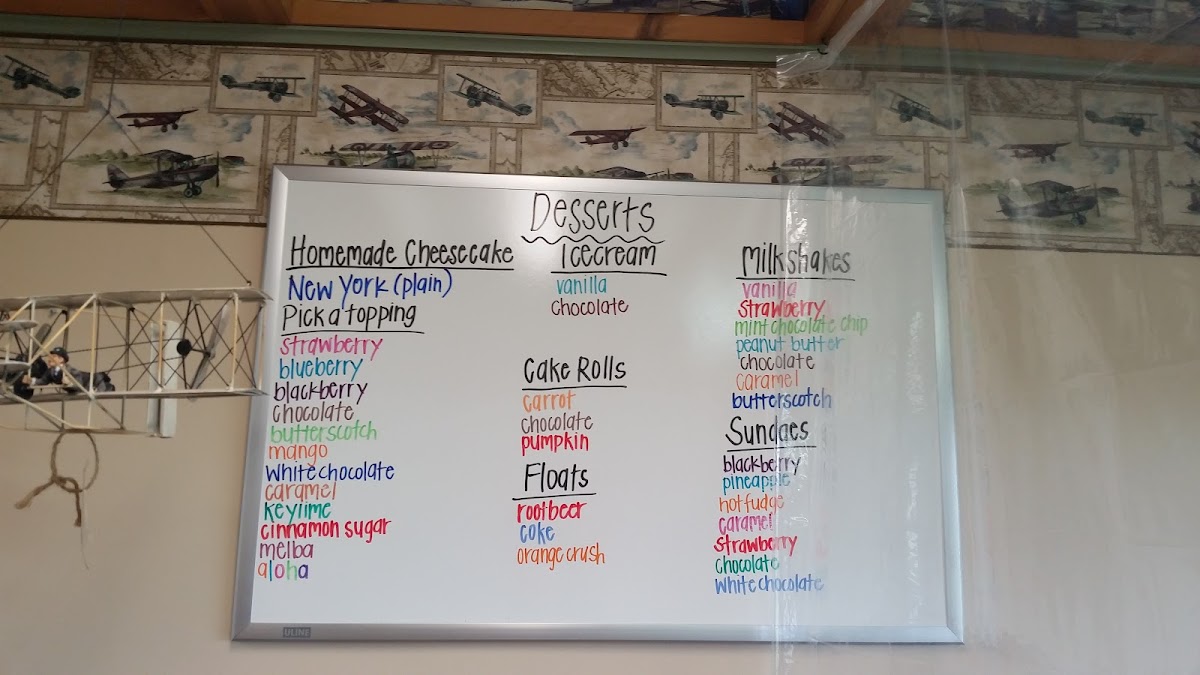 Desserts
Homemade Cheesecake
New York (plain)
Pick a topping
strawberry
blueberry
blackberry
chocolate
butterscotch
mango
white chocolate
caramel
keylime
cinnamon sugar
melba
aloha
Icecream
vanilla
chocolate
Cake Rolls
carrot
chocolate
pumpkin
Floats
rootbeer
coke
orange crush
Milkshakes
vanilla
strawberry
mint chocolate chip
peanut butter
chocolate
caramel
butterscotch
Sundaes
blackberry
pineapple
hot fudge
caramel
strawberry
chocolate
white chocolate
ULINE